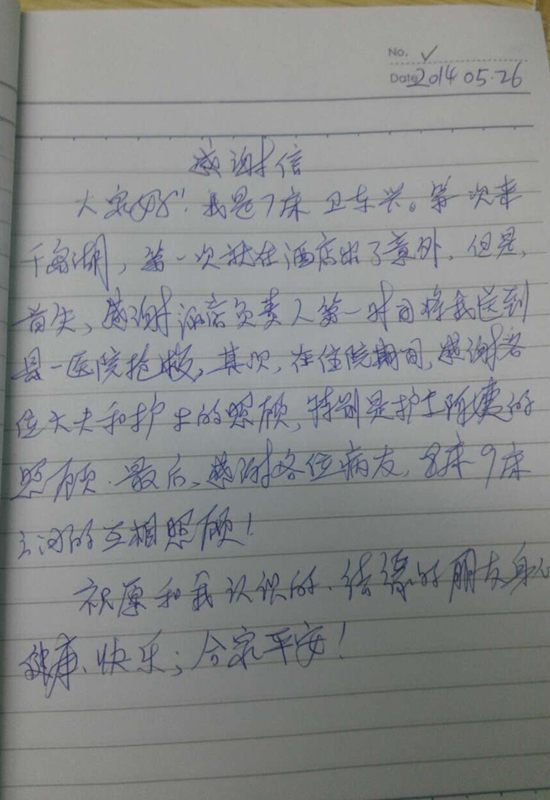 No. ✓
Date 2014 05.26
感谢信
大家好！我是7床卫东兴。第一次来
千岛湖，第一次就在酒店出了意外，但是，
首先，感谢酒店负责人第一时间将我送到
县一医院抢救，其次，在住院期间，感谢各
位大夫和护士的照顾，特别是护士阿姨的
照顾．最后，感谢各位病友，8床9床
之间的互相照顾！
祝愿和我认识的、结缘的朋友身心
健康、快乐；合家平安！